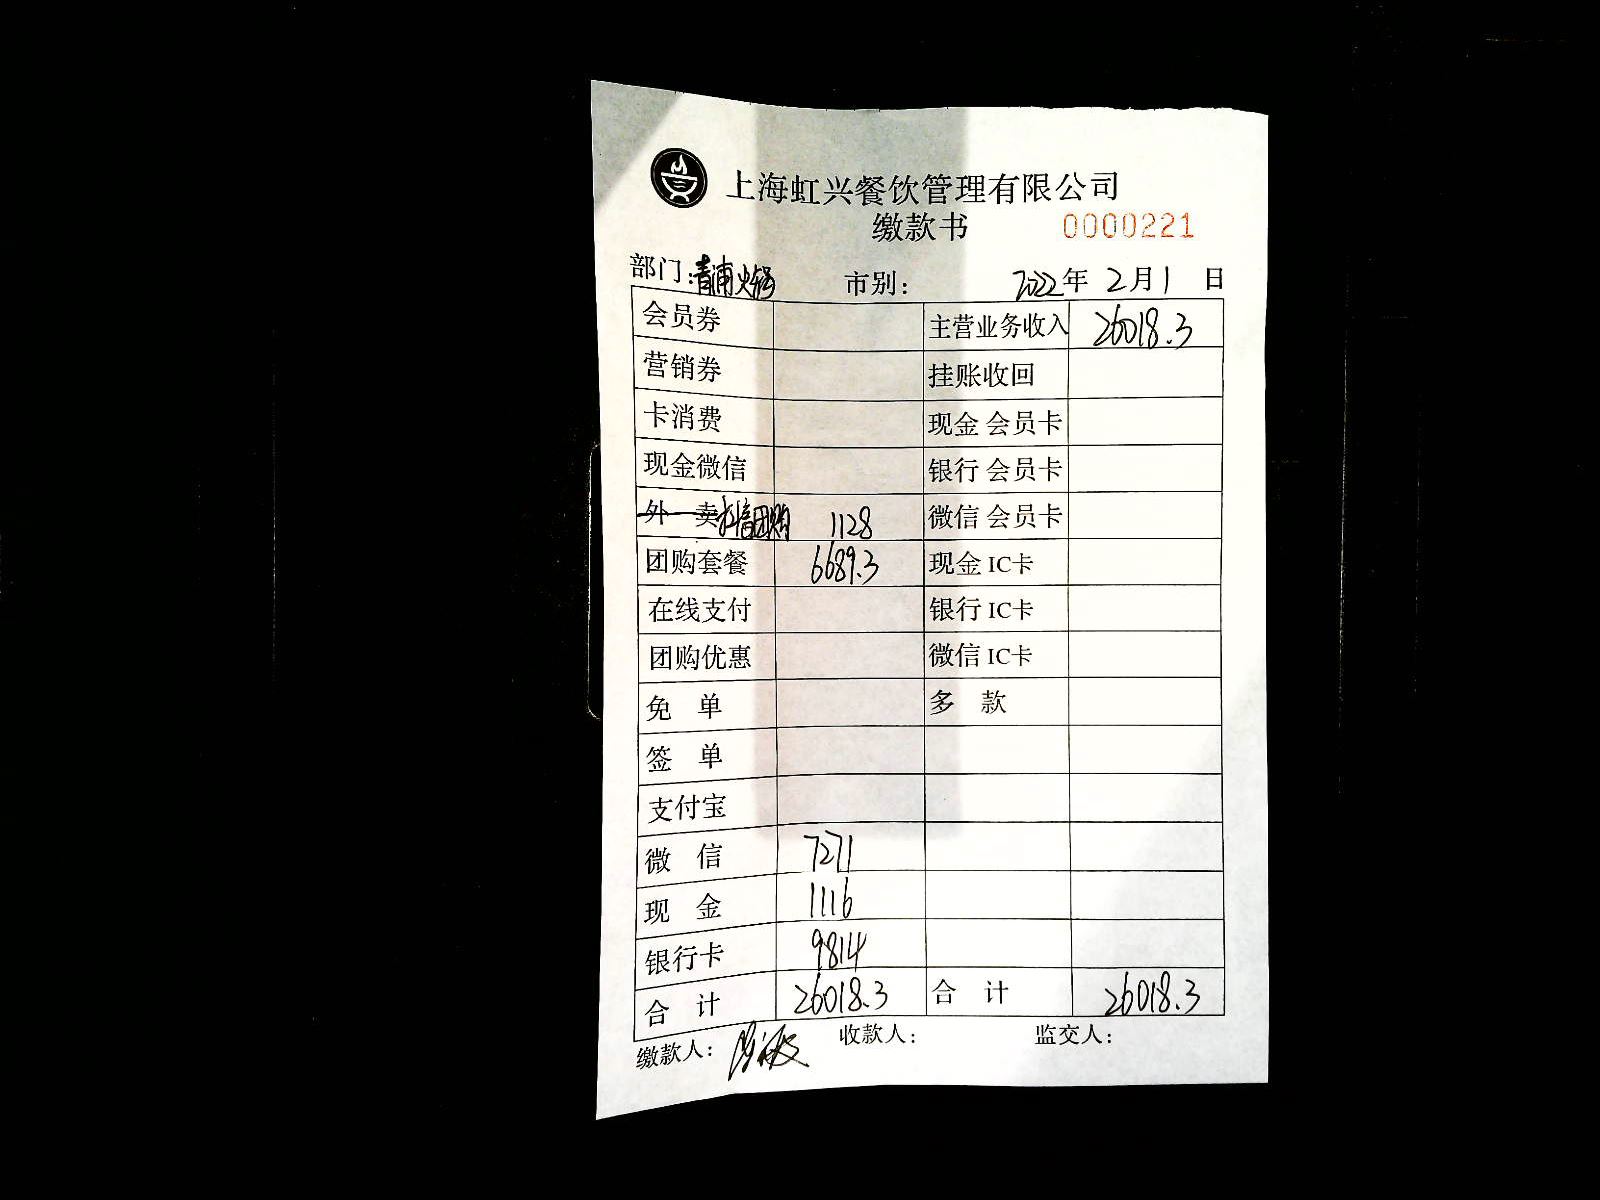 上海虹兴餐饮管理有限公司
缴款书 0000221
部门:青浦火锅 市别: 2022年 2月1 日
会员券 主营业务收入 26018.3
营销券 挂账收回
卡消费 现金 会员卡
现金微信 银行 会员卡
外 卖 抖音团购 1128 微信 会员卡
团购套餐 6689.3 现金 IC卡
在线支付 银行 IC卡
团购优惠 微信 IC卡
免 单 多 款
签 单
支付宝
微 信 7271
现 金 1116
银行卡 9814
合 计 26018.3 合 计 26018.3
缴款人: 收款人: 监交人: